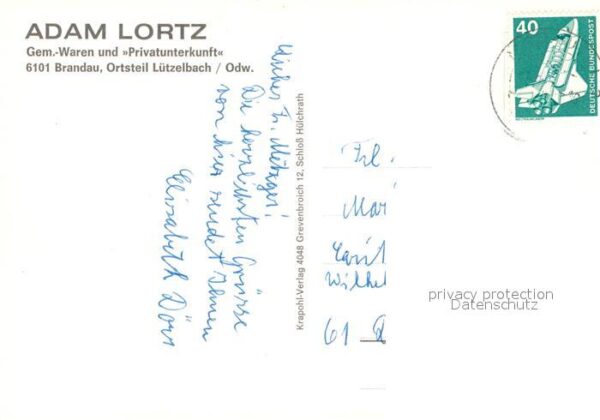 ADAM LORTZ
Gem.-Waren und »Privatunterkunft«
6101 Brandau, Ortsteil Lützelbach / Odw.
40
DEUTSCHE BUNDESPOST
Fr. Metzger!
Die herzlichsten Grüsse
von hier sendet Ihnen
Elisabeth
Krapohl-Verlag 4048 Grevenbroich 12, Schloß Hülchrath
Frl.
Mar
Wilhel
61
privacy protection
Datenschutz